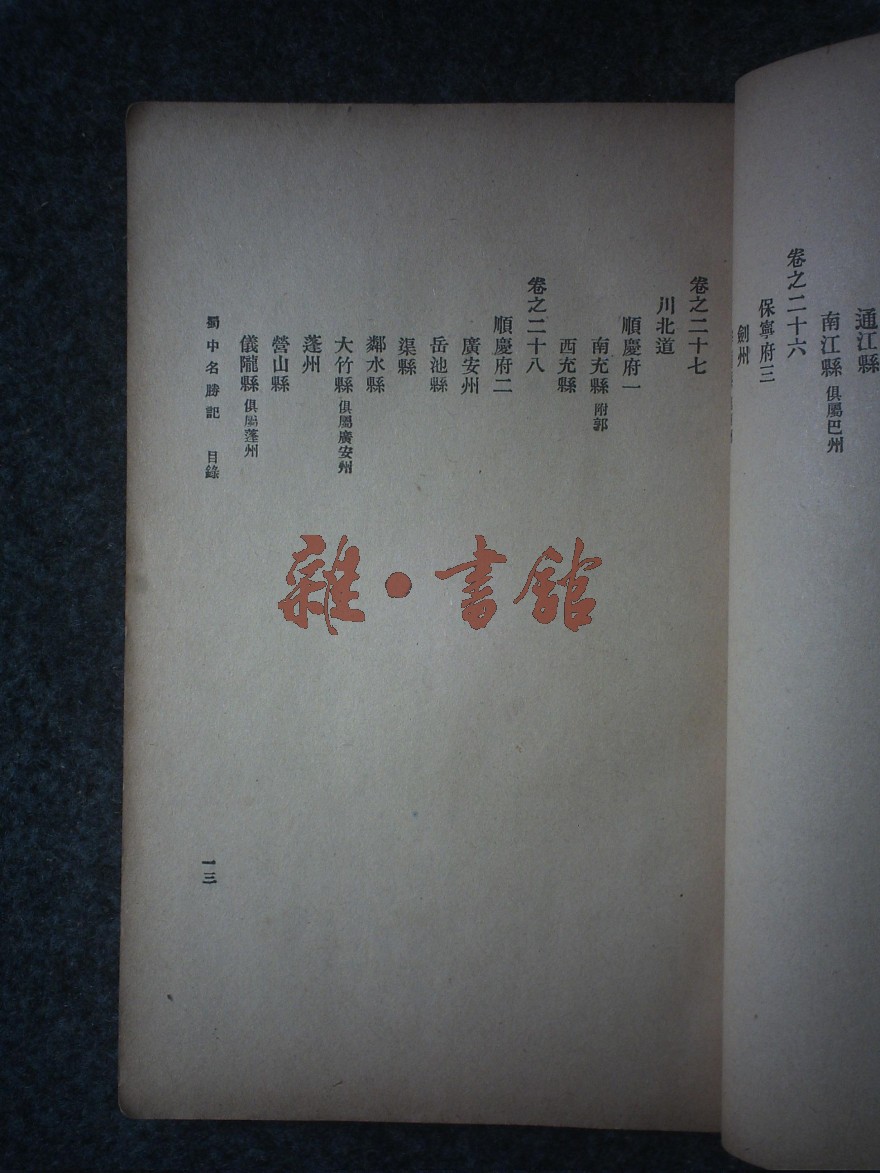 通江縣
南江縣 俱屬巴州
卷之二十六
保寧府三
劍州
卷之二十七
川北道
順慶府一
南充縣 附郭
西充縣
卷之二十八
順慶府二
廣安州
岳池縣
渠縣
鄰水縣
大竹縣 俱屬廣安州
蓬州
營山縣
儀隴縣 俱屬蓬州
蜀中名勝記 目錄
一三
雜·書館